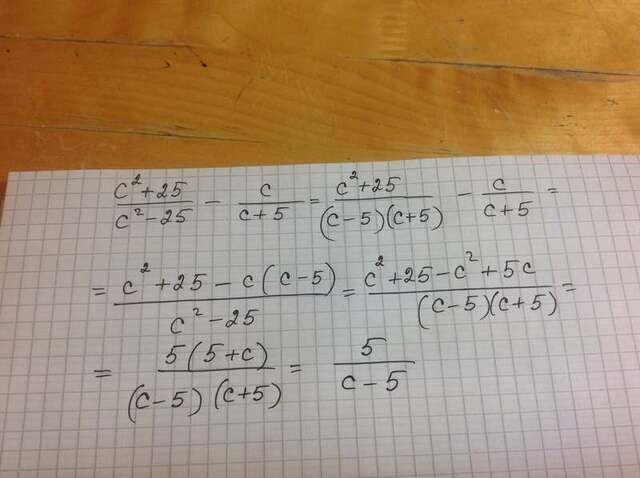 (c² + 25)/(c² - 25) - c/(c + 5) = (c² + 25)/((c - 5)(c + 5)) - c/(c + 5) =
= (c² + 25 - c(c - 5))/(c² - 25) = (c² + 25 - c² + 5c)/((c - 5)(c + 5)) =
= (5(5 + c))/((c - 5)(c + 5)) = 5/(c - 5)